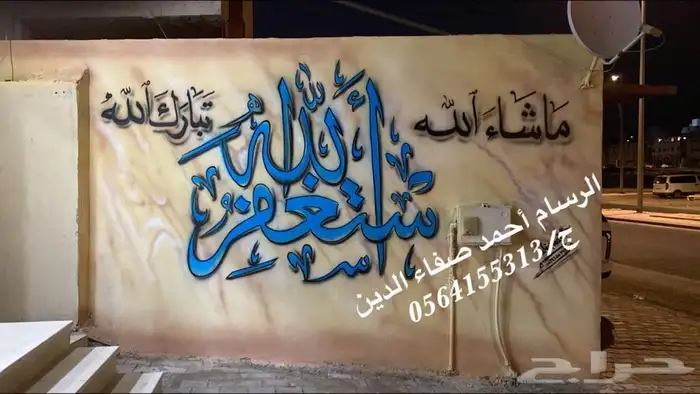 ما شاء الله
تبارك الله
أستغفر الله
الرسام أحمد صفاء الدين
ج/0564155313
حراج